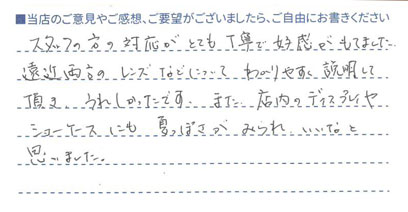 ■当店のご意見やご感想、ご要望がございましたら、ご自由にお書きください
スタッフの方の対応がとても丁寧で好感がもてました
遠近両方のレンズなどについてわかりやすく説明して
頂き、うれしかったです。また、店内のディスプレイや
ショーケースにも夏っぽさがみられ、いいなと
思いました。